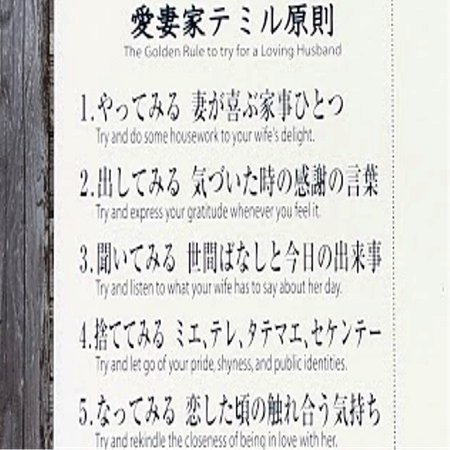 愛妻家テミル原則
The Golden Rule to try for a Loving Husband
1.やってみる 妻が喜ぶ家事ひとつ
Try and do some housework to your wife's delight.
2.出してみる 気づいた時の感謝の言葉
Try and express your gratitude whenever you feel it.
3.聞いてみる 世間ばなしと今日の出来事
Try and listen to what your wife has to say about her day.
4.捨ててみる ミエ、テレ、タテマエ、セケンテー
Try and let go of your pride, shyness, and public identities.
5.なってみる 恋した頃の触れ合う気持ち
Try and rekindle the closeness of being in love with her.